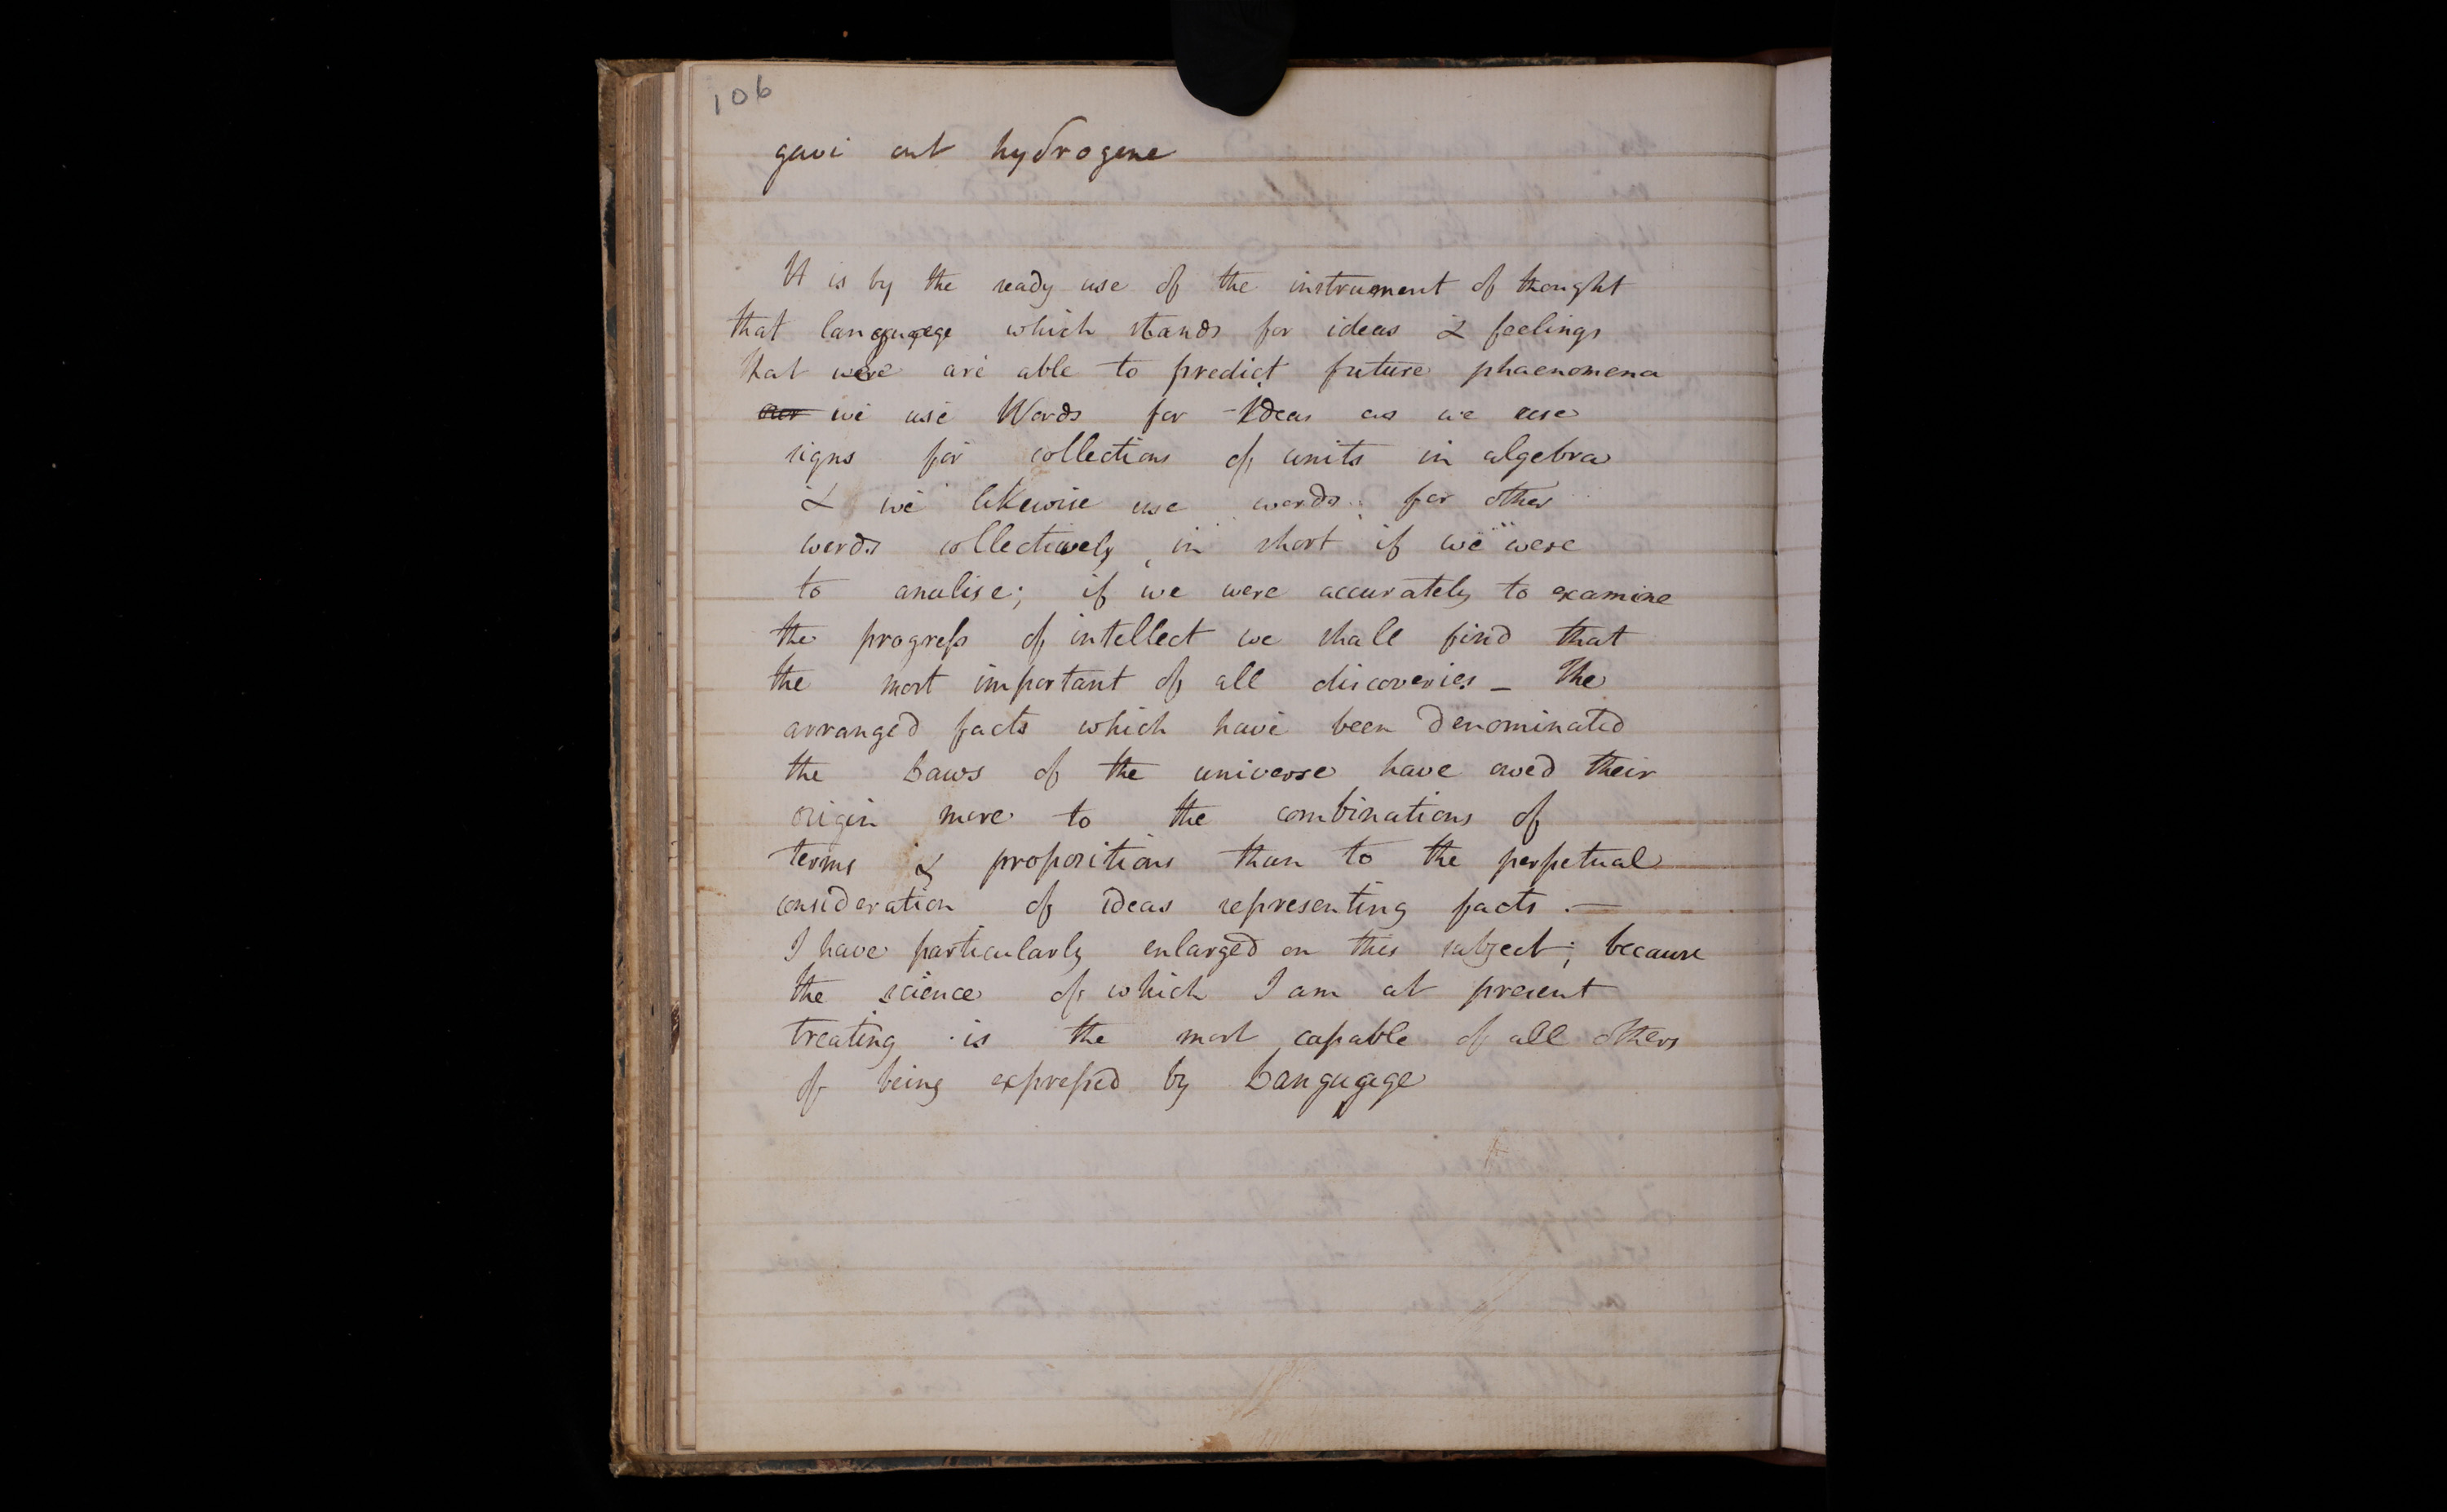 106
gave out hydrogene
It is by the ready use of the instrument of thought
that language which stands for ideas & feelings
that we are able to predict future phaenomena
we use Words for Ideas as we use
signs for collections of units in algebra
& we likewise use words for other
words collectively, in short if we were
to analise; if we were accurately to examine
the progress of intellect we shall find that
the most important of all discoveries – The
arranged facts which have been denominated
the Laws of the universe have owed their
origin more to the combinations of
terms & propositions than to the perpetual
consideration of ideas representing facts. —
I have particularly enlarged on this subject; because
the science of which I am at present
treating is the most capable of all others
of being expressed by Language